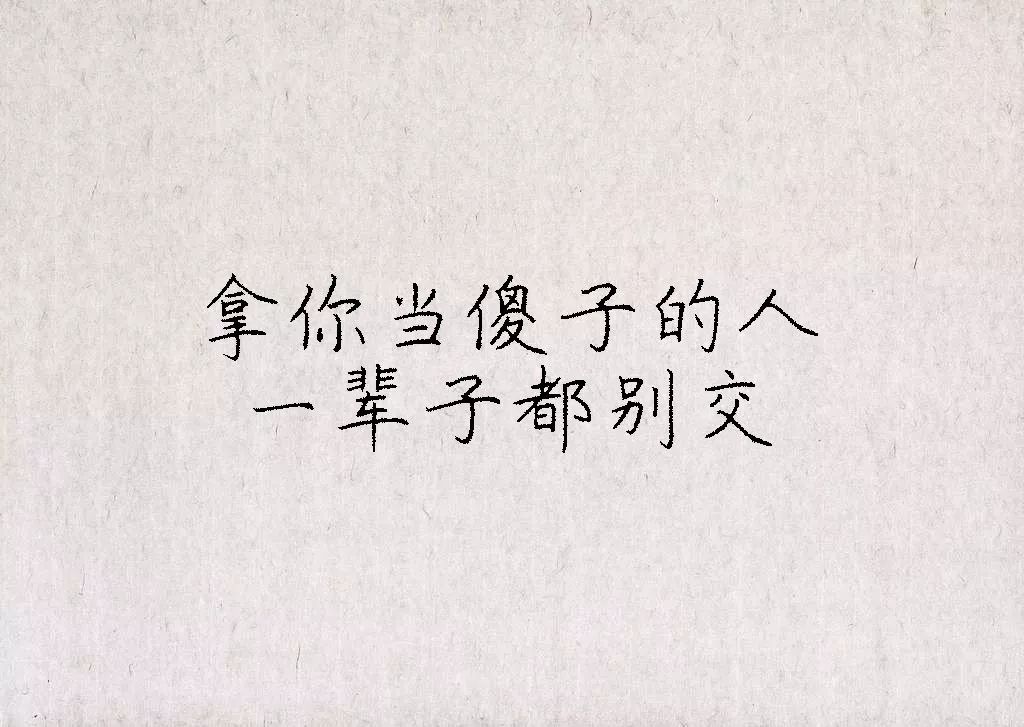 拿你当傻子的人
一辈子都别交